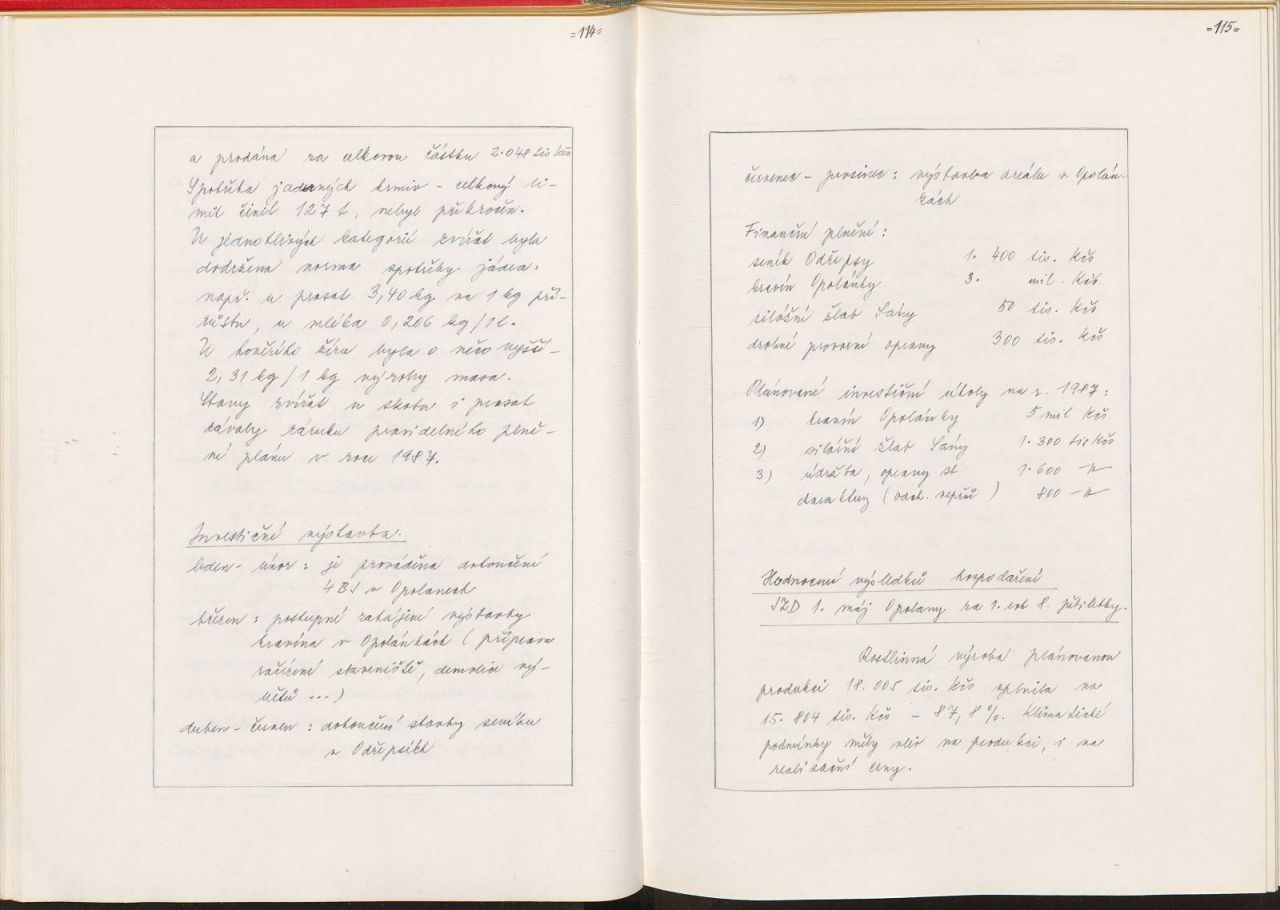 =114=
a prodána za celkovou částku 2.048 tis Kčs
Spotřeba jaderných krmiv - celkový li-
mit činil 127 t, nebyl překročen.
U jednotlivých kategorií zvířat byla
dodržena norma spotřeby jádra.
např. u prasat 3,40 kg na 1 kg pří-
růstu, u mléka 0,206 kg/1l.
U hovězího žíru byla o něco vyšší -
2,31 kg/1 kg výroby masa.
Stavy zvířat u skotu i prasat
dávaly záruku pravidelného plně-
ní plánu v roce 1987.
Investiční výstavba.
leden - únor : je prováděna dokončení
4 BJ v Opolanech
březen : postupné zahájení výstavby
kravína v Opolánkách ( příprava
zařízení staveniště, demolice vý-
běhů ... )
duben - červen : dokončení stavby seníku
v Odřepsích
=115=
červenec - prosinec : výstavba areálu v Opolán-
kách
Finanční plnění :
seník Odřepsy 1. 400 tis. Kčs
kravín Opolánky 3. mil. Kčs
silážní žlab Sány 50 tis. Kčs
drobné provozní opravy 300 tis. Kčs
Plánované investiční úkoly na r. 1987 :
1) kravín Opolánky 5 mil Kčs
2) silážní žlab Sány 1. 300 tis Kčs
3) údržba, opravy st. 1. 600 -"-
( odch. vepřů ) 800 -"-
Hodnocení výsledků hospodaření
JZD 1. máj Opolany za 1. rok 8. pětiletky.
Rostlinná výroba plánovanou
produkci 18.005 tis. Kčs splnila na
15. 804 tis. Kčs - 87,8 %. Klimatické
podmínky měly vliv na produkci, i na
realizační ceny.